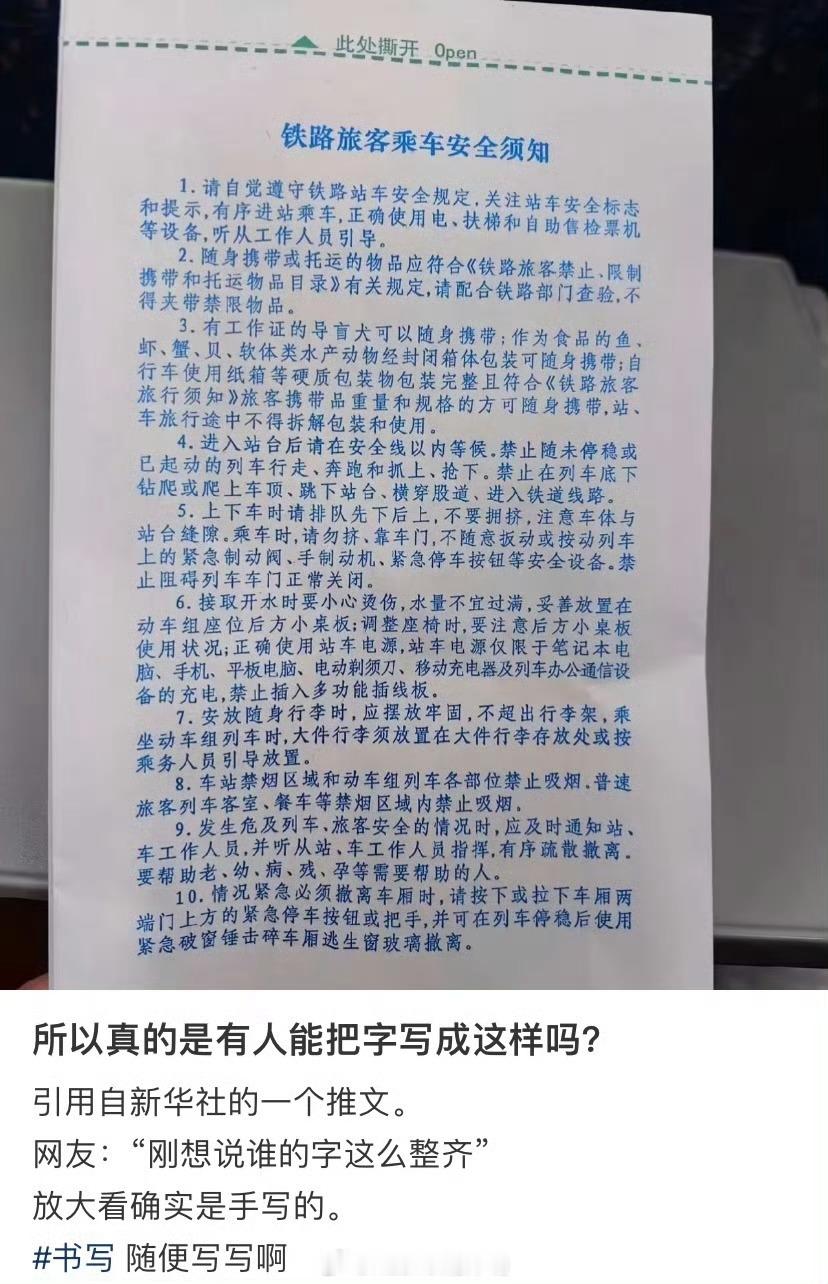 此处撕开 Open
铁路旅客乘车安全须知
1.请自觉遵守铁路站车安全规定,关注站车安全标志
和提示,有序进站乘车,正确使用电、扶梯和自助售检票机
等设备,听从工作人员引导。
2.随身携带或托运的物品应符合《铁路旅客禁止、限制
携带和托运物品目录》有关规定,请配合铁路部门查验,不
得夹带禁限物品。
3.有工作证的导盲犬可以随身携带;作为食品的鱼、
虾、蟹、贝、软体类水产动物经封闭箱体包装可随身携带;自
行车使用纸箱等硬质包装物包装完整且符合《铁路旅客
旅行须知》旅客携带品重量和规格的方可随身携带,站、
车旅行途中不得拆解包装和使用。
4.进入站台后请在安全线以内等候.禁止随未停稳或
已起动的列车行走、奔跑和抓上、抢下。禁止在列车底下
钻爬或爬上车顶、跳下站台、横穿股道、进入铁道线路。
5.上下车时请排队先下后上,不要拥挤,注意车体与
站台缝隙。乘车时,请勿挤、靠车门,不随意扳动或按动列车
上的紧急制动阀、手制动机、紧急停车按钮等安全设备。禁
止阻碍列车车门正常关闭。
6.接取开水时要小心烫伤,水量不宜过满,妥善放置在
动车组座位后方小桌板;调整座椅时,要注意后方小桌板
使用状况;正确使用站车电源,站车电源仅限于笔记本电
脑、手机、平板电脑、电动剃须刀、移动充电器及列车办公通信设
备的充电,禁止插入多功能插线板。
7.安放随身行李时,应摆放牢固,不超出行李架,乘
坐动车组列车时,大件行李须放置在大件行李存放处或按
乘务人员引导放置。
8.车站禁烟区域和动车组列车各部位禁止吸烟.普速
旅客列车客室、餐车等禁烟区域内禁止吸烟。
9.发生危及列车、旅客安全的情况时,应及时通知站、
车工作人员,并听从站、车工作人员指挥,有序疏散撤离。
要帮助老、幼、病、残、孕等需要帮助的人。
10.情况紧急必须撤离车厢时,请按下或拉下车厢两
端门上方的紧急停车按钮或把手,并可在列车停稳后使用
紧急破窗锤击碎车厢逃生窗玻璃撤离。
所以真的是有人能把字写成这样吗?
引用自新华社的一个推文。
网友:“刚想说谁的字这么整齐”
放大看确实是手写的。
#书写 随便写写啊